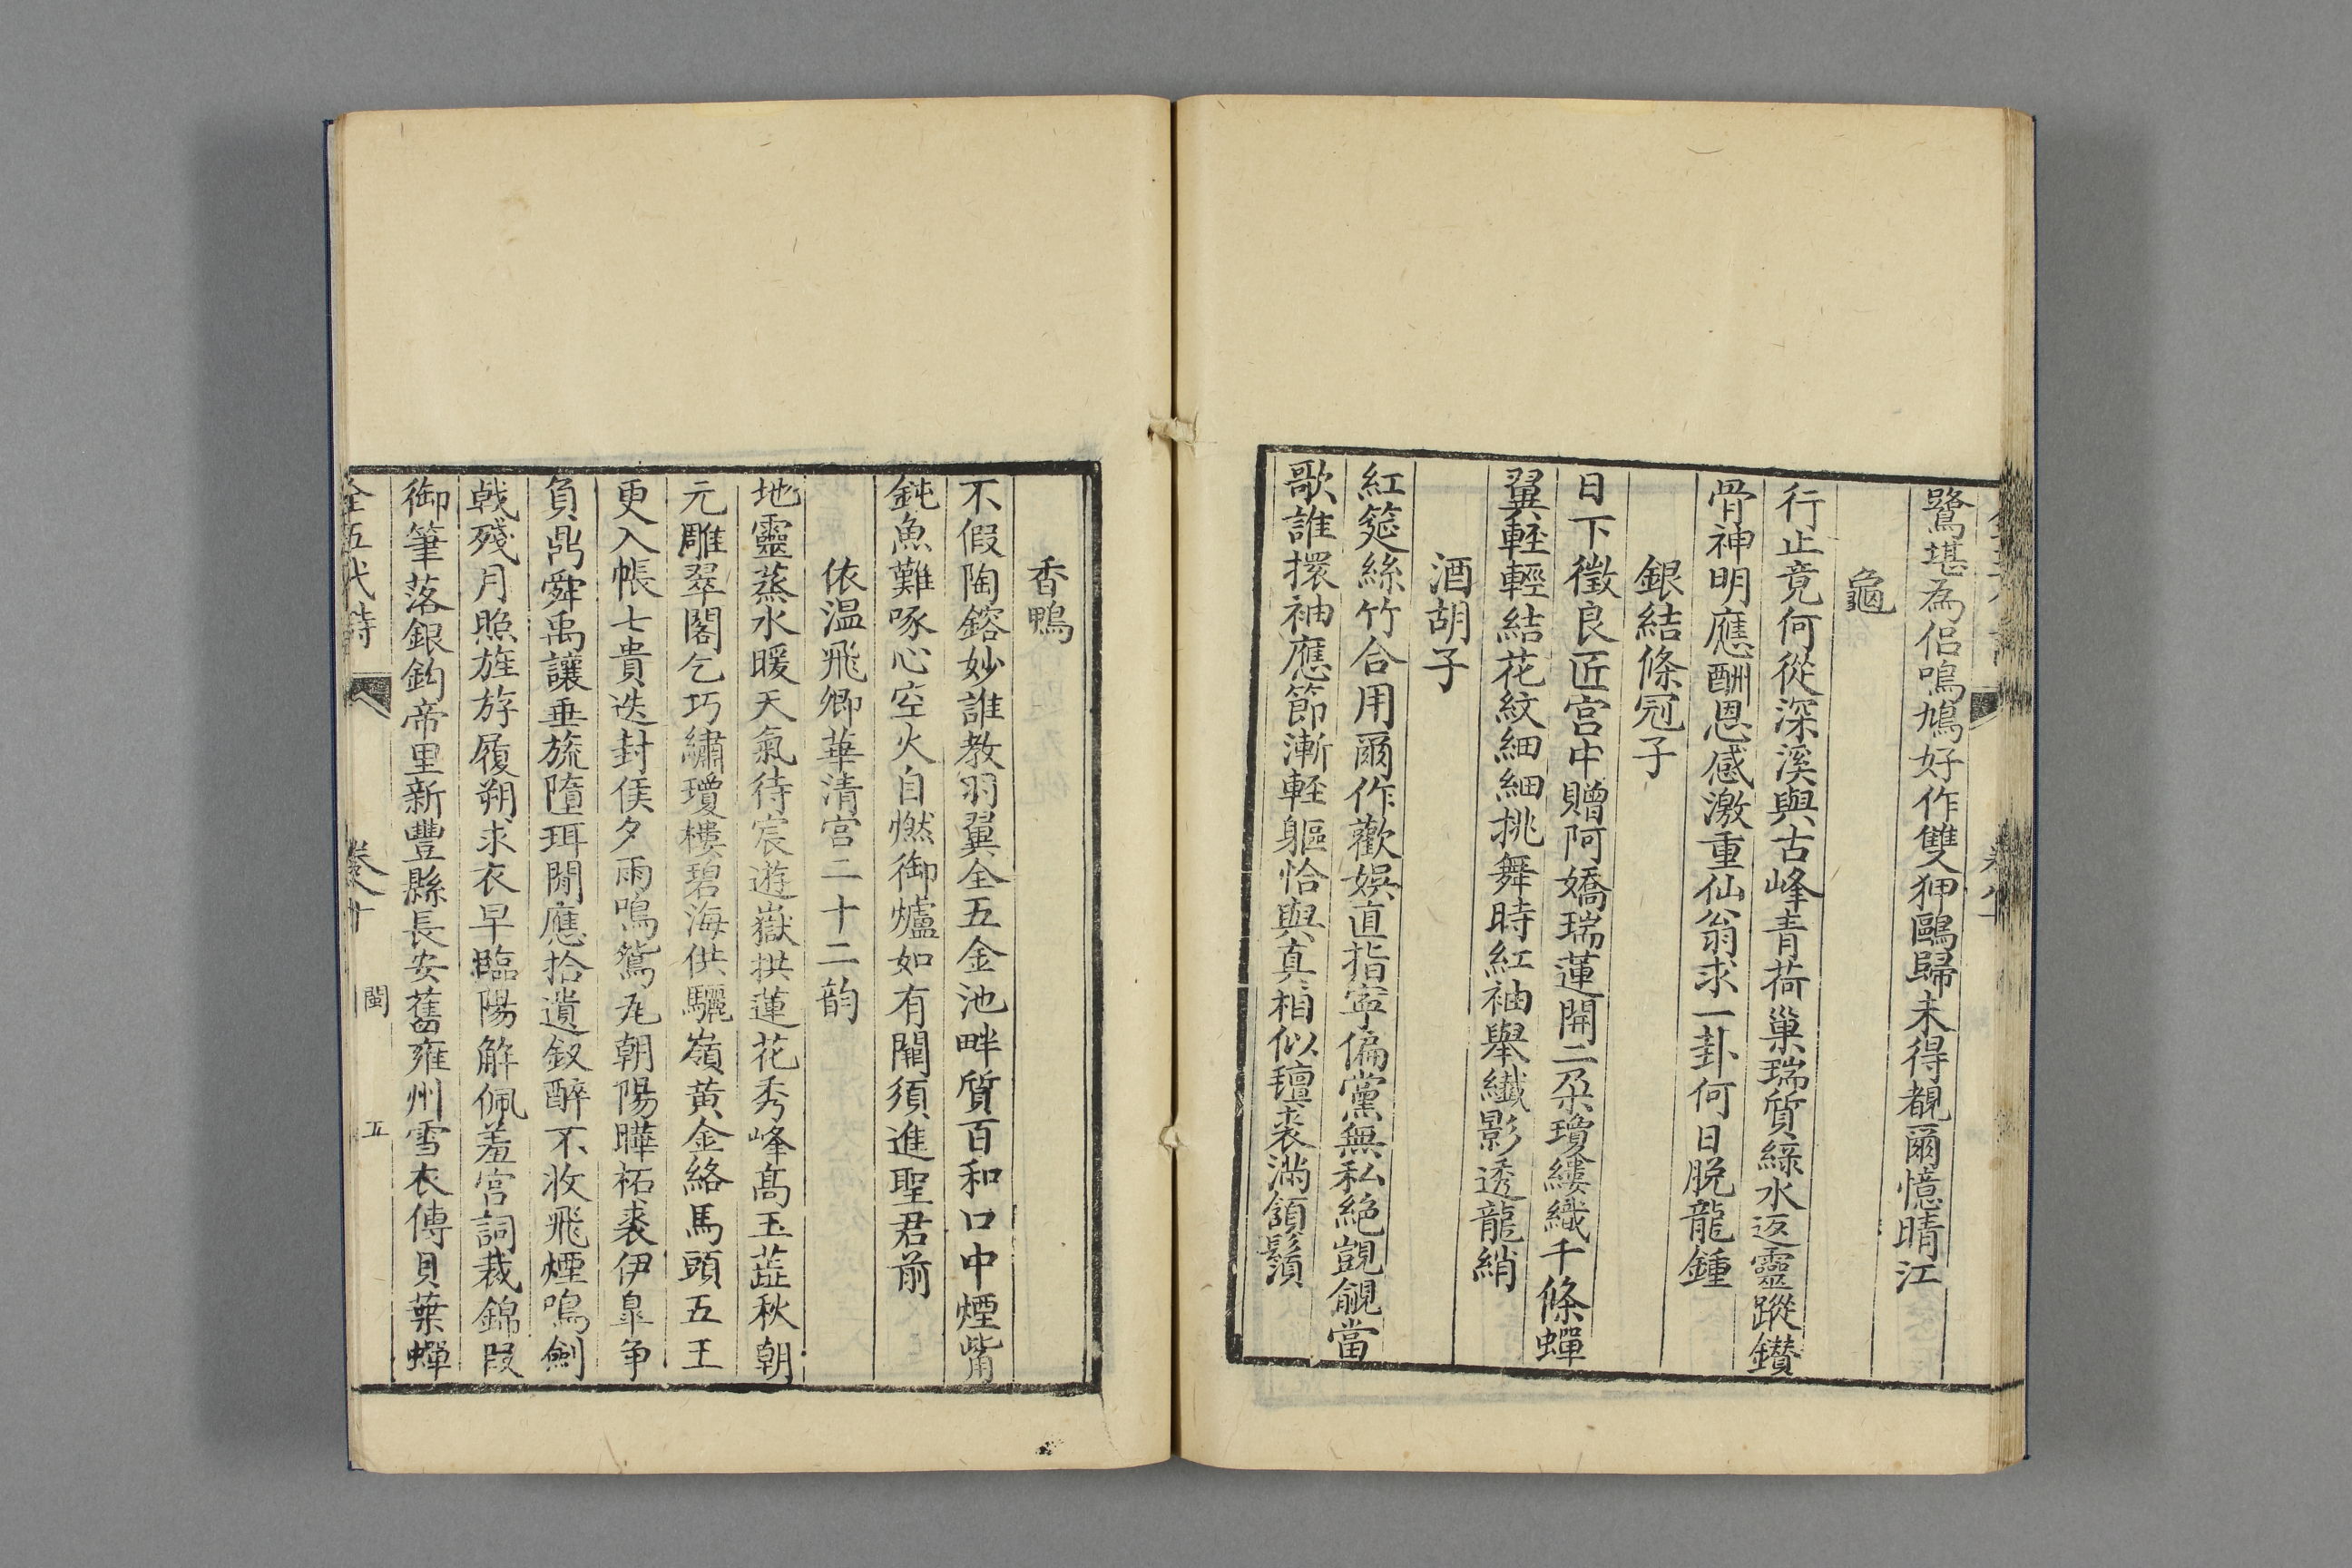 鷺堪為侶鳴鳩好作雙狎鷗歸未得覩爾憶晴江
龜
行止竟何從深溪與古峰青荷巢瑞質綠水返靈蹤鑽
骨神明應酬恩感激重仙翁求一卦何日脫龍鍾
銀結條冠子
日下徵良匠宮中贈阿嬌瑞蓮開二朶瓊縷織千條蟬
翼輕輕結花紋細細挑舞時紅袖舉纖影透龍綃
酒胡子
紅筵絲竹合用爾作歡娛直指寧偏黨無私絕覬覦當
歌誰擐袖應節漸輕軀恰與真相似氊裘滿頷鬚
香鴨
不假陶鎔妙誰教羽翼全五金池畔質百和口中煙觜
鈍魚難啄心空火自燃御爐如有闕須進聖君前
依溫飛卿華清宮二十二韵
地靈蒸水暖天氣待宸遊嶽拱蓮花秀峰高玉蕋秋朝
元雕翠閣乞巧繡瓊樓碧海供驪嶺黃金絡馬頭五王
更入帳七貴迭封侯夕雨鳴鴛瓦朝陽曄柘裘伊臯爭
負鼎舜禹讓垂旒墮珥閒應拾遺釵醉不收飛煙嗚劍
戟殘月照旌斿履朔求衣早臨陽解佩羞宮詞裁錦段
御筆落銀鈎帝里新豐縣長安舊雍州雪衣傳貝葉蟬
全五代詩 卷八十 閩 五